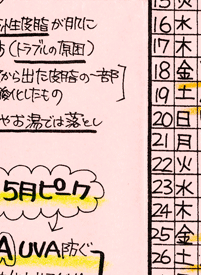 性皮脂が肌に
(トラブルの原因)
から出た皮脂の一部
酸化したもの
やお湯では落とし
5月ピーク
A UVA防ぐ
15 火
16 水
17 木
18 金
19 土
20 日
21 月
22 火
23 水
24 木
25 金
26 土